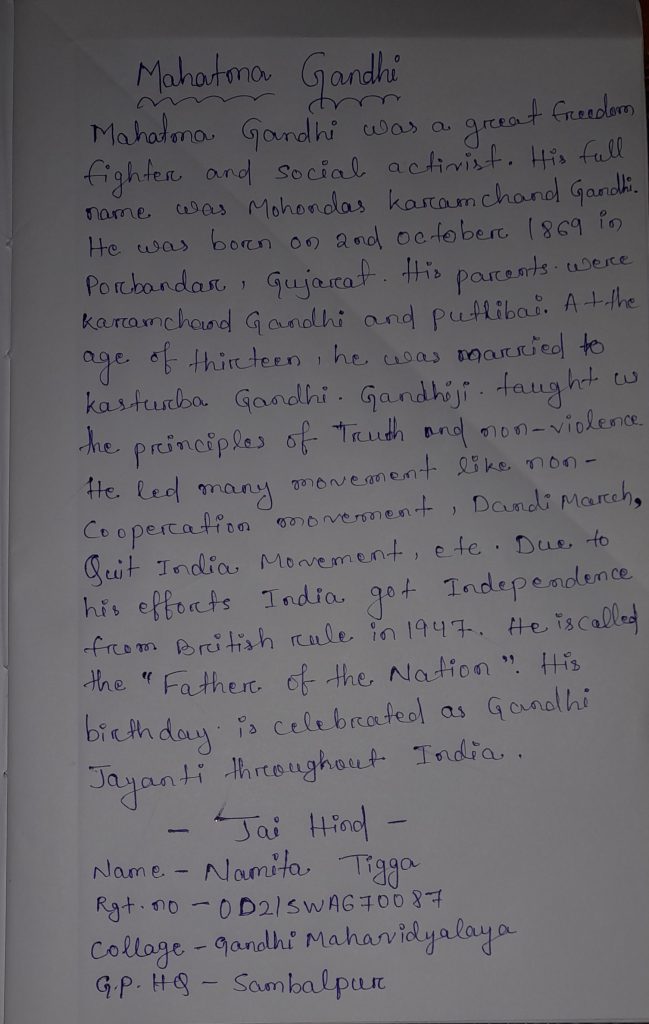 Mahatma Gandhi
Mahatma Gandhi was a great freedom
fighter and social activist. His full
name was Mohondas karamchand Gandhi.
He was born on 2nd october 1869 in
Porbandar, Gujarat. His parents were
karramchand Gandhi and putlibai. At the
age of thirteen, he was married to
kasturba Gandhi. Gandhiji. taught us
the principles of Truth and non-violence
He led many movement like non-
Cooperation movement, Dandi March,
Quit India Movement, etc. Due to
his efforts India got Independence
from British rule in 1947. He is called
the "Father of the Nation". His
birthday is celebrated as Gandhi
Jayanti throughout India.
- Jai Hind -
Name - Namita Tigga
Rgt. no - OD21SWA670087
Collage - Gandhi Mahavidyalaya
G.P. HQ - Sambalpur